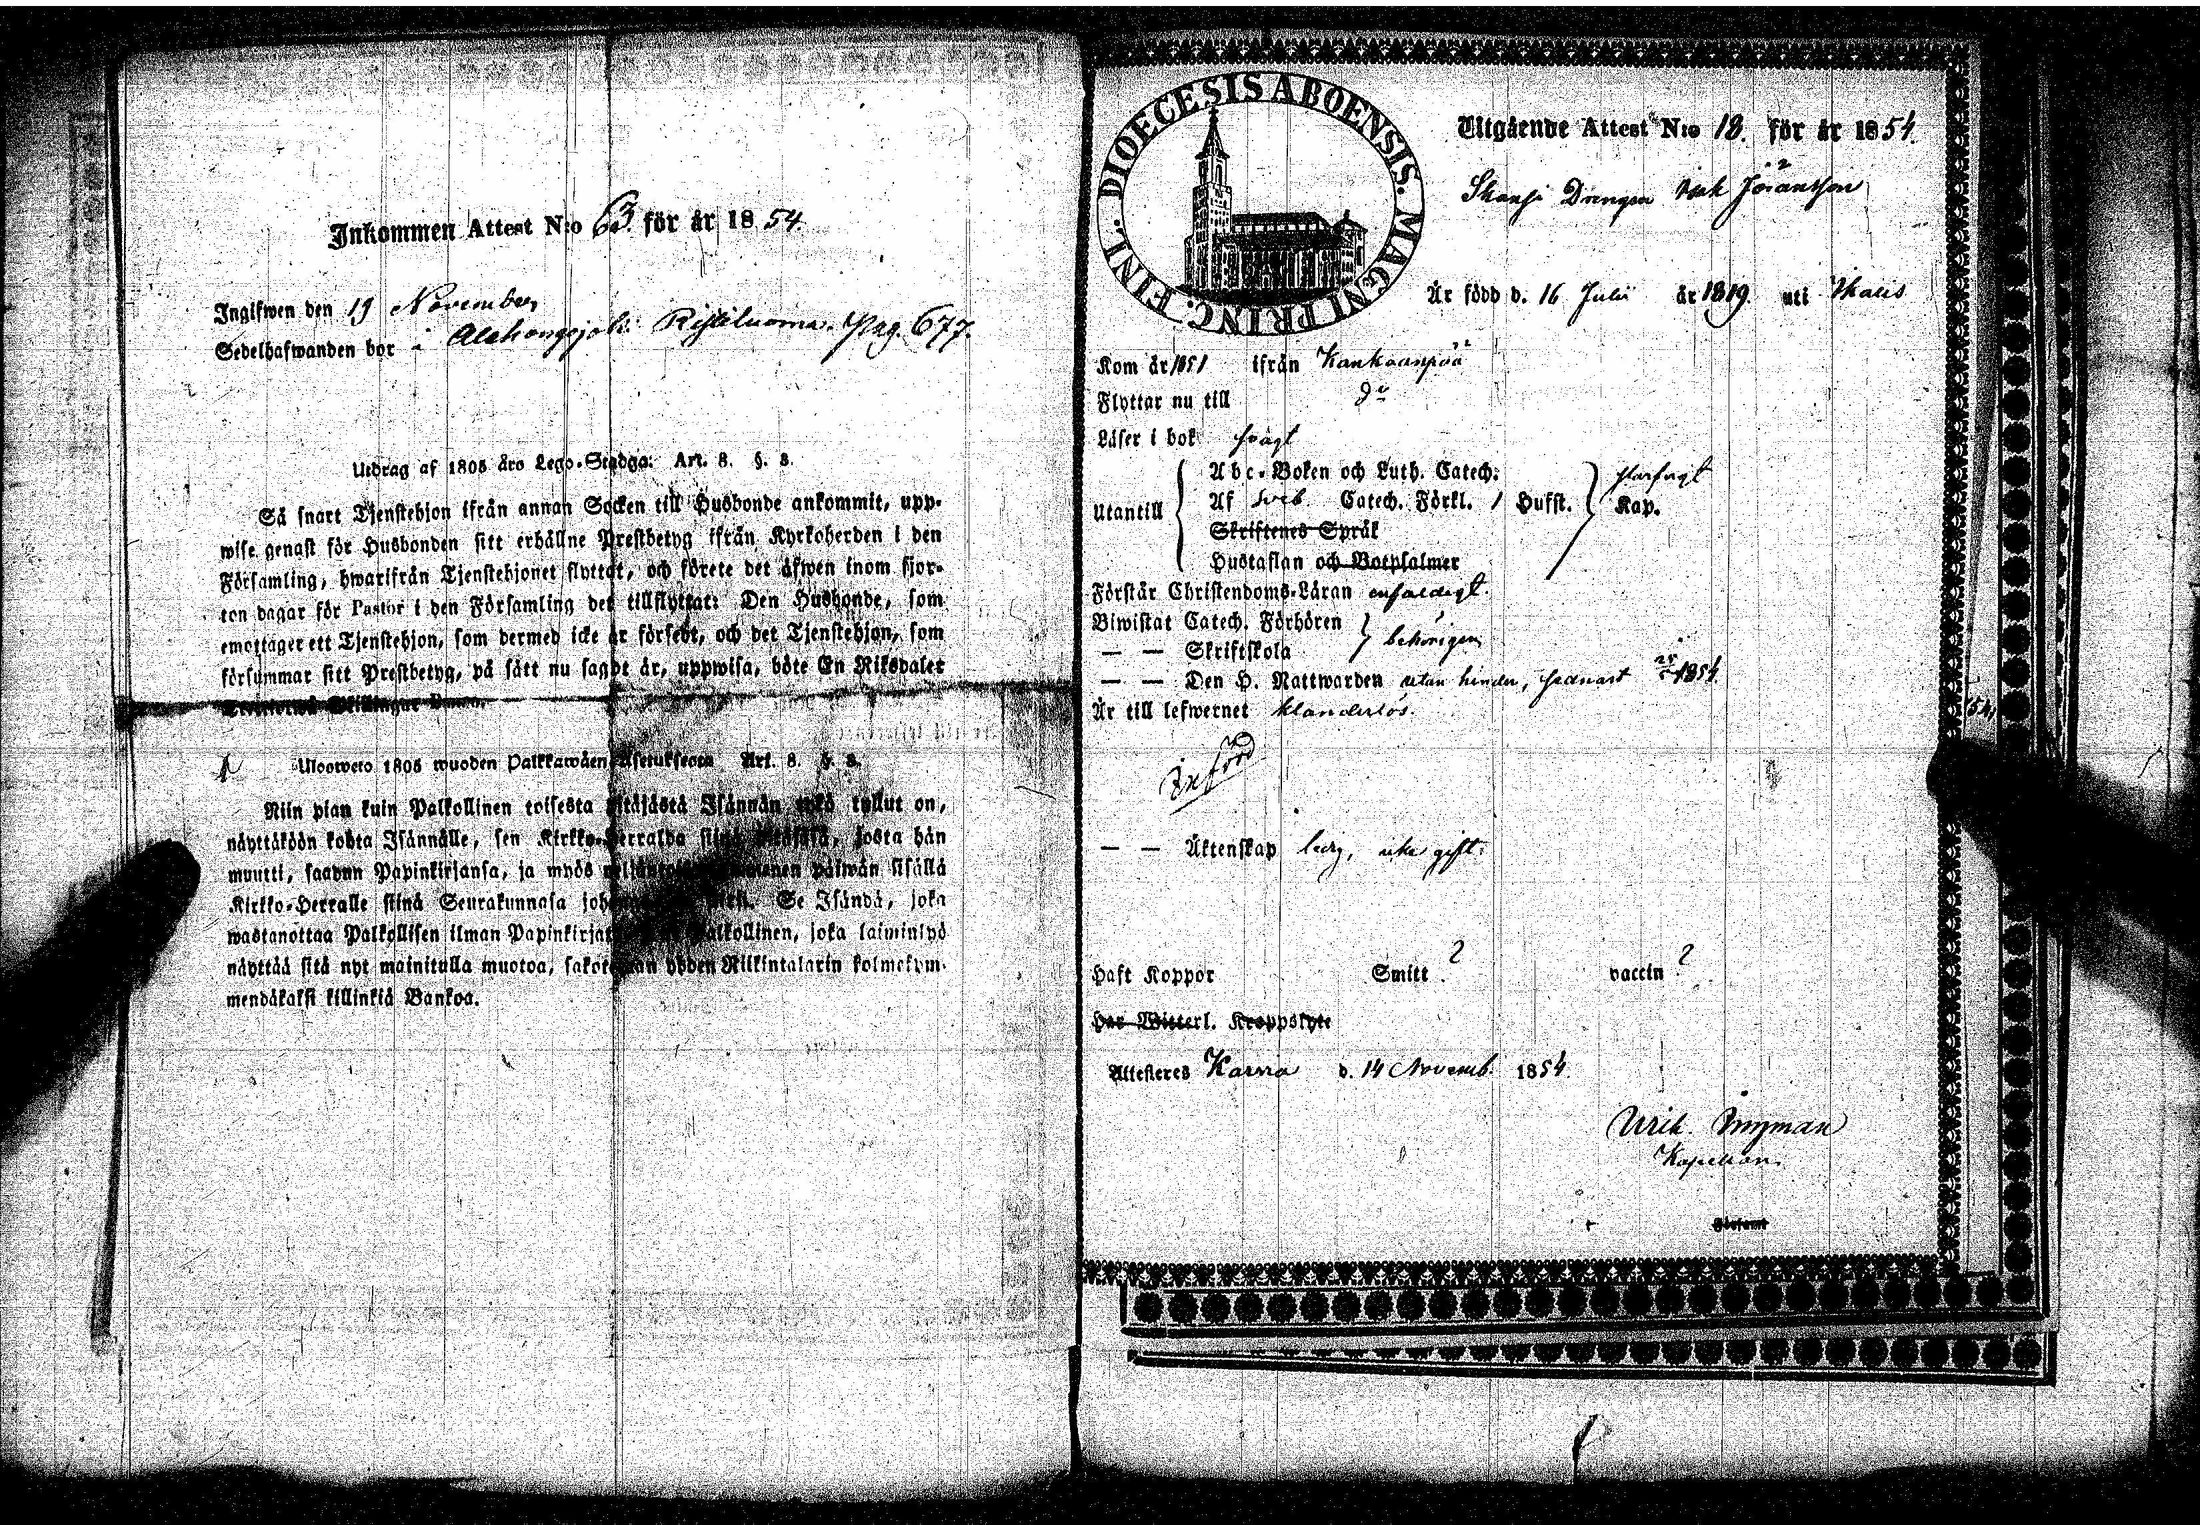 Inkommen Attest N:o 63. för år 1854.
Ingifwen den 19 November
Sedelhafwanden bor i Alahongojoki Ristiluoma. Pag. 677.
Utdrag af 1805 års Lego-Stadga: Art. 8. §. 3.
Så snart Tjenstehjon ifrån annan Socken till Husbonde ankommit, upp-
wise genast för Husbonden sitt erhållne Prestbetyg ifrån Kyrkoherden i den
Församling, hwarifrån Tjenstehjonet flyttat, och förete det åfwen inom fjor-
ton dagar för Pastor i den Församling det tillflyttat: Den Husbonde, som
emottager ett Tjenstehjon, som dermed icke är försedt, och det Tjenstehjon, som
försummar sitt Prestbetyg, på sätt nu sagdt är, uppwisa, böte En Riksdaler
Skillingar Banco.
Ulosweto 1805 wuoden Palkkawäen Asetuksesta Art. 8. §. 3.
Niin pian kuin Palkollinen toisesta pitäjästä Isännän tykö tullut on,
näyttäköön kohta Isännälle, sen Kirkko-Herralda siinä pitäjäsä, josta hän
muutti, saadun Papinkirjansa, ja myös päiwän sisällä
Kirkko-Herralle siinä Seurakunnasa Se Isändä, joka
wastanottaa Palkollisen ilman Papinkirjata Palkollinen, joka laiminlyö
näyttää sitä nyt mainitulla muotoa, yhden Riikintalarin kolmekym-
mendäkaksi killinkiä Bankoa.
DIOECESIS ABOENSIS. MAGNI PRINC. FINL.
Utgående Attest N:o 18. för år 1854.
Drengen Isak Jöransson
Är född d. 16 Julii år 1819. uti Ikalis
Kom år 1851 ifrån Kankaanpää
Flyttar nu till d:o
Läser i bok swagt
Utantill
Abc-Boken och Luth. Catech:
Af Sveb. Catech. Förkl. 1 Hufst. Kap.
Skriftenes Språk
Hustaflan och Botpsalmer
Förstår Christendoms-Läran enfaldigt.
Biwistat Catech. Förhören
— — Skriftskola behörigen
— — Den H. Nattwarden utan hinder, senast 1854.
Är till lefwernet klanderlös.
Införd
— — Äktenskap ledig, icke gift.
Haft Koppor Smitt ? vaccin ?
Har Witterl. Kroppslyte
Attesteras Karvia d. 14 Novemb. 1854.
Ulrik Ingman
Kapellan.